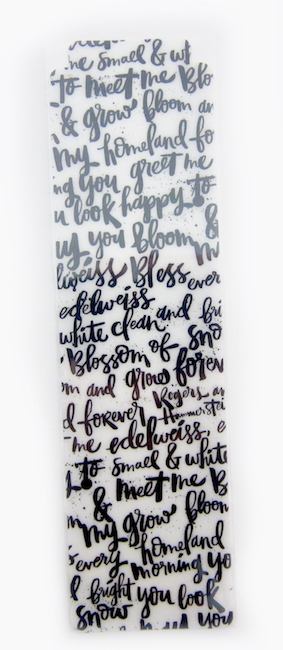 me small & wh
to meet me Blo
& grow bloom an
my homeland fo
ng you greet me
u look happy to
you bloom &
lweiss Bless m
ever
edelweiss
and bri
white clean
Blossom of sno
om and grow forev
Rogers an
d forever Hammerstei
me edelweiss. e
to small & white
& meet me B
my grow bloom
every homeland
morning yo
bright you look
snow
you